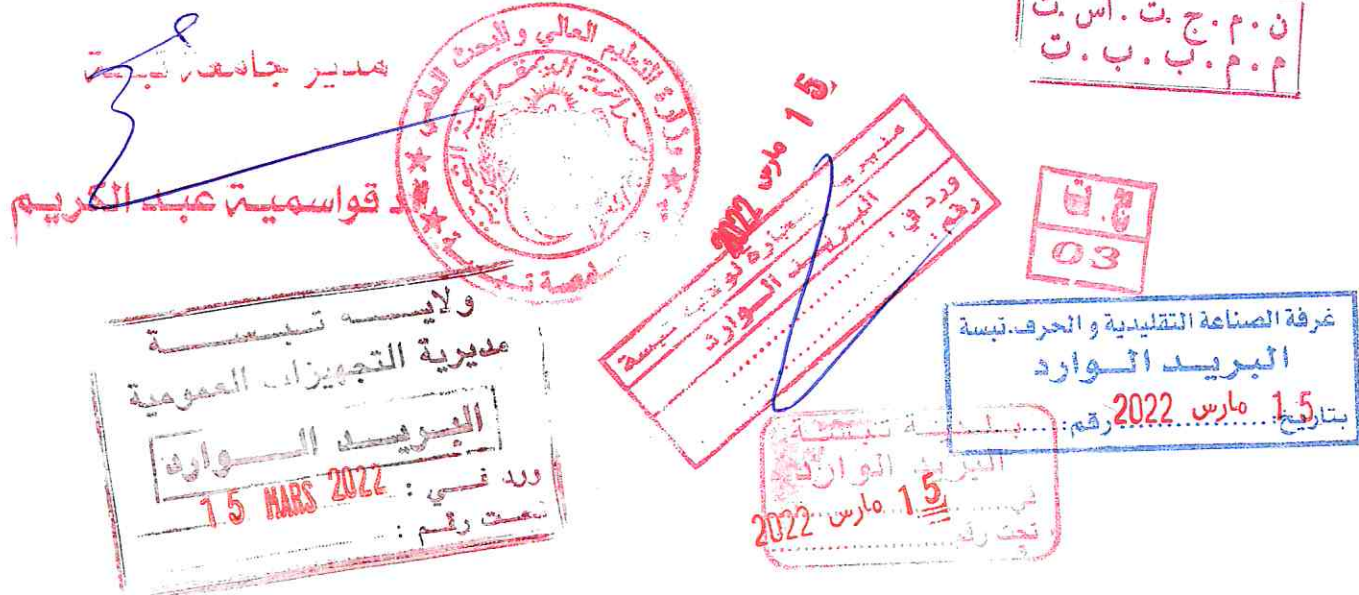 ن.م.ج.ت.اس.ت
م.م.ب.ب.ت
مدير جامعة تبسة
قواسمية عبد الكريم
وزارة التعليم العالي والبحث العلمي
جامعة تبسة
15 مارس 2022
البريد الوارد
ورد في :
رقم :
ج.ت
03
غرفة الصناعة التقليدية و الحرف.تبسة
البريد الوارد
بتاريخ: 15 مارس 2022 رقم:
ولايــة تبسة
مديرية التجهيزات العمومية
البريد الوارد
ورد في : 15 MARS 2022
تحت رقم :
بلدية تبسة
البريد الوارد
في 15 مارس 2022
تحت رقم